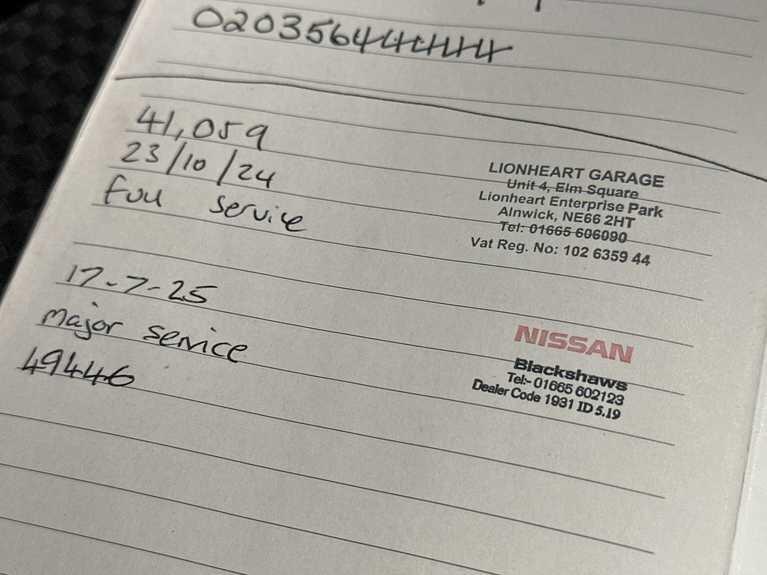 0203564444444
41,059
23/10/24
Full service
LIONHEART GARAGE
Unit 4, Elm Square
Lionheart Enterprise Park
Alnwick, NE66 2HT
Tel: 01665 606090
Vat Reg. No: 102 6359 44
17-7-25
Major service
49446
NISSAN
Blackshaws
Tel:- 01665 602123
Dealer Code 1931 ID 5.19